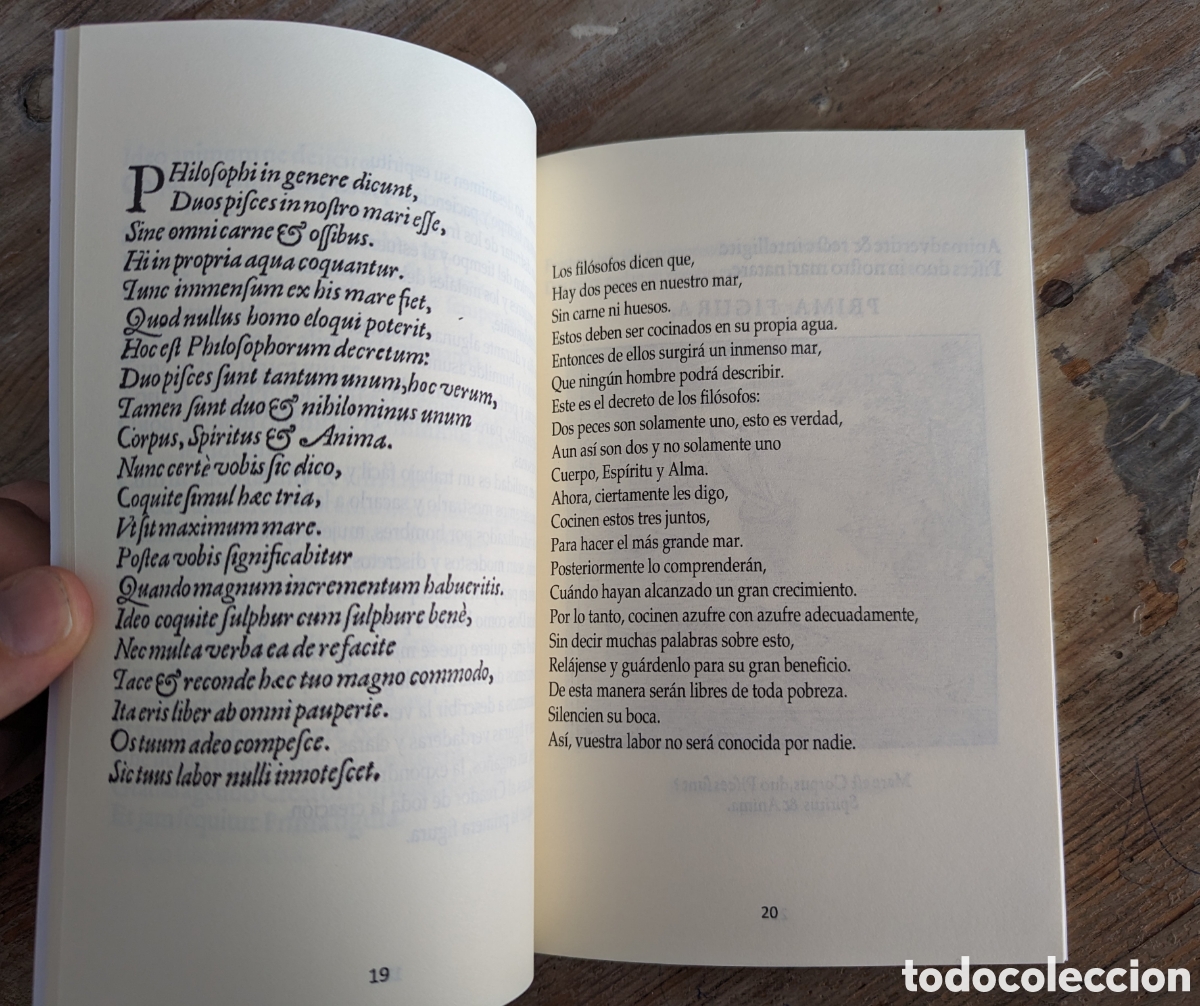 PHiloſophi in genere dicunt,
Duos piſces in noſtro mari eſſe,
Sine omni carne & oſſibus.
Hi in propria aqua coquantur.
Tunc immenſum ex his mare fiet,
Quod nullus homo eloqui poterit,
Hoc eſt Philoſophorum decretum:
Duo piſces ſunt tantum unum, hoc verum,
Tamen ſunt duo & nihilominus unum
Corpus, Spiritus & Anima.
Nunc certè vobis ſic dico,
Coquite ſimul hæc tria,
Vt ſit maximum mare.
Poſtea vobis ſignificabitur
Quando magnum incrementum habueritis.
Ideo coquite ſulphur cum ſulphure benè,
Nec multa verba ea de re facite
Tace & reconde hæc tuo magno commodo,
Ita eris liber ab omni pauperie.
Os tuum adeo compeſce.
Sic tuus labor nulli innoteſcet.
19
Los filósofos dicen que,
Hay dos peces en nuestro mar,
Sin carne ni huesos.
Estos deben ser cocinados en su propia agua.
Entonces de ellos surgirá un inmenso mar,
Que ningún hombre podrá describir.
Este es el decreto de los filósofos:
Dos peces son solamente uno, esto es verdad,
Aun así son dos y no solamente uno
Cuerpo, Espíritu y Alma.
Ahora, ciertamente les digo,
Cocinen estos tres juntos,
Para hacer el más grande mar.
Posteriormente lo comprenderán,
Cuándo hayan alcanzado un gran crecimiento.
Por lo tanto, cocinen azufre con azufre adecuadamente,
Sin decir muchas palabras sobre esto,
Relájense y guárdenlo para su gran beneficio.
De esta manera serán libres de toda pobreza.
Silencien su boca.
Así, vuestra labor no será conocida por nadie.
20
todocoleccion